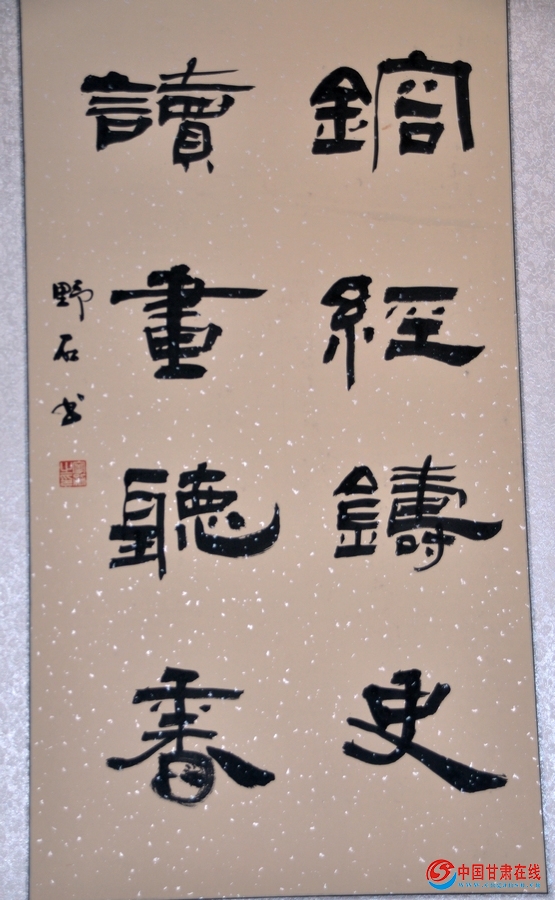 鎔經鑄史
讀畫聽香
野石书
中国甘肃在线